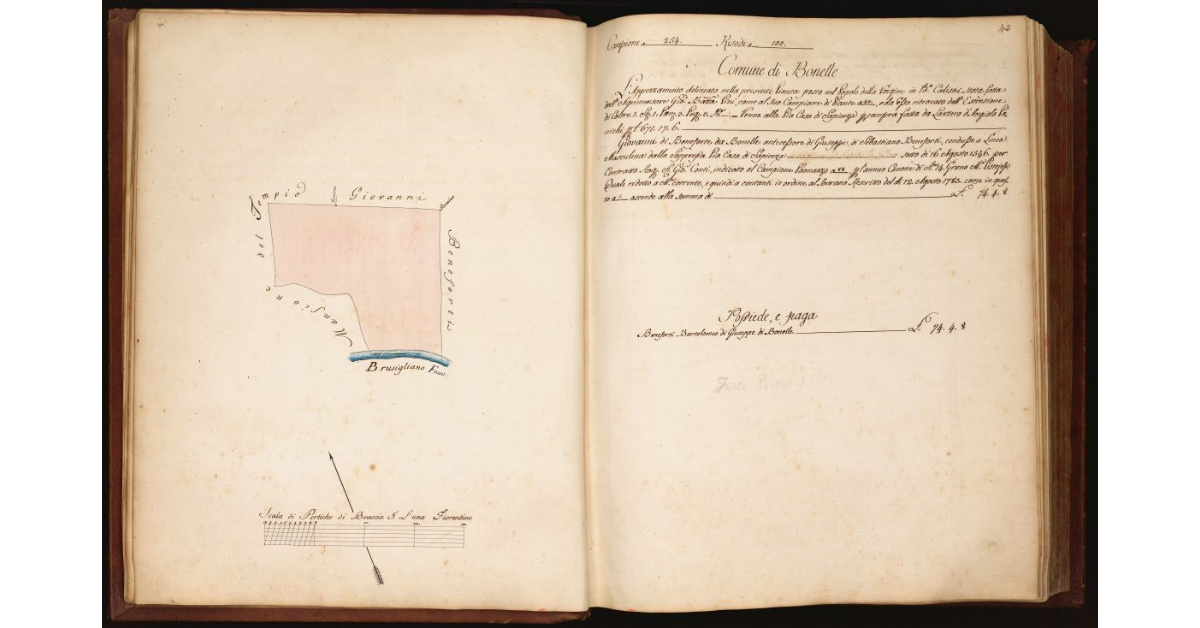 del Tempio
Giovanni
Beneforti
Mansione
Brusigliano Fosso
Scala di Pertiche di Braccia 5 L'una Fiorentine
43
Campione a 234. Risedi a 100.
Comune di Bonelle
L'Appezzamento delineato nella presente Pianta posto nel Popolo della Vergine in Po. Calistri stata fatta
dall'Agrimensore Gio. Batta. Pini, come al suo Campione di Piante a ed a esso ritrovato dell'Estensione
di Coltre 1. Venne alla Pia Casa di Sapienza compra fatta da Lazzero di Angiolo
£ 671. 17. 6.
Giovanni di Beneforte da Bonelle antecessore di Giuseppe di Sebastiano Beneforti, condusse a Linea
Masculina dalla Soppressa Pia Casa di Sapienza sotto di 16. Agosto 1546. per
Contratto Rog. Conti, indicato al Campione Bonanza l'annuo Canone di 14. Grano Pistojese
Quale ridotto a corrente, e quindi a contanti in ordine al Sovrano Rescritto del dì 12. Agosto 1783. come in ques
to a ascende alla somma di £. 74. 4. 8
Possiede, e paga
Beneforti Bartolomeo di Giuseppe di Bonelle £. 74. 4. 8